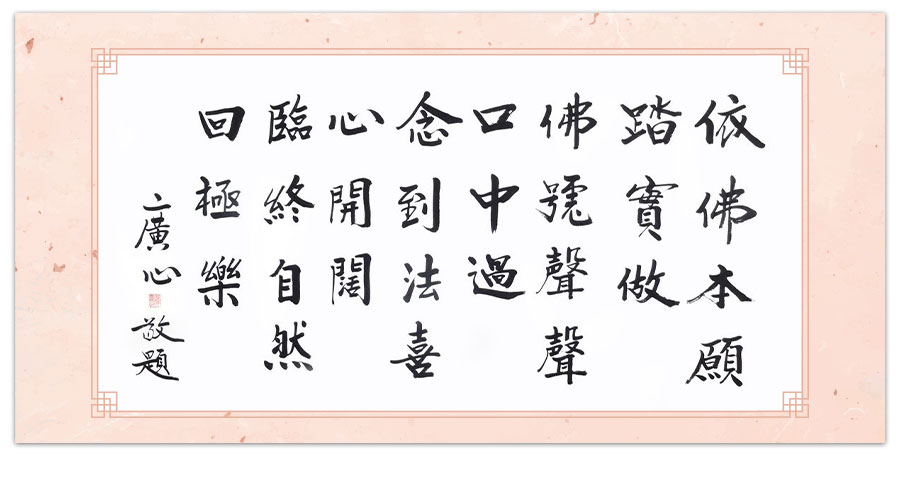 依佛本願
踏實做
佛號聲聲
口中過
念到法喜
心開闊
臨終自然
回極樂
二廣心 敬題